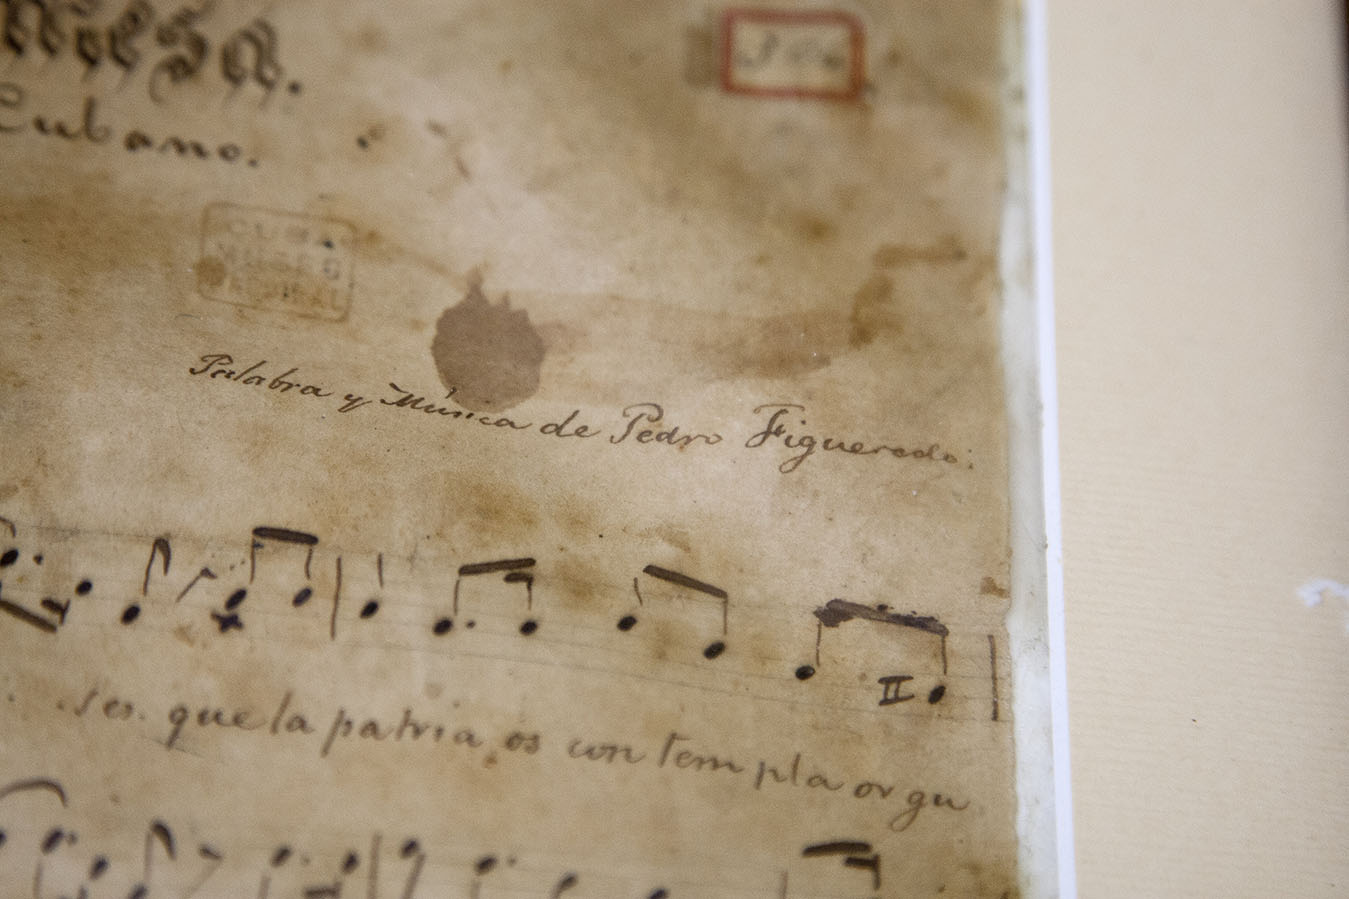 Cubano.
CUBA
MUSEO
Palabra y Música de Pedro Figueredo.
ses. que la patria os con tem pla or gu